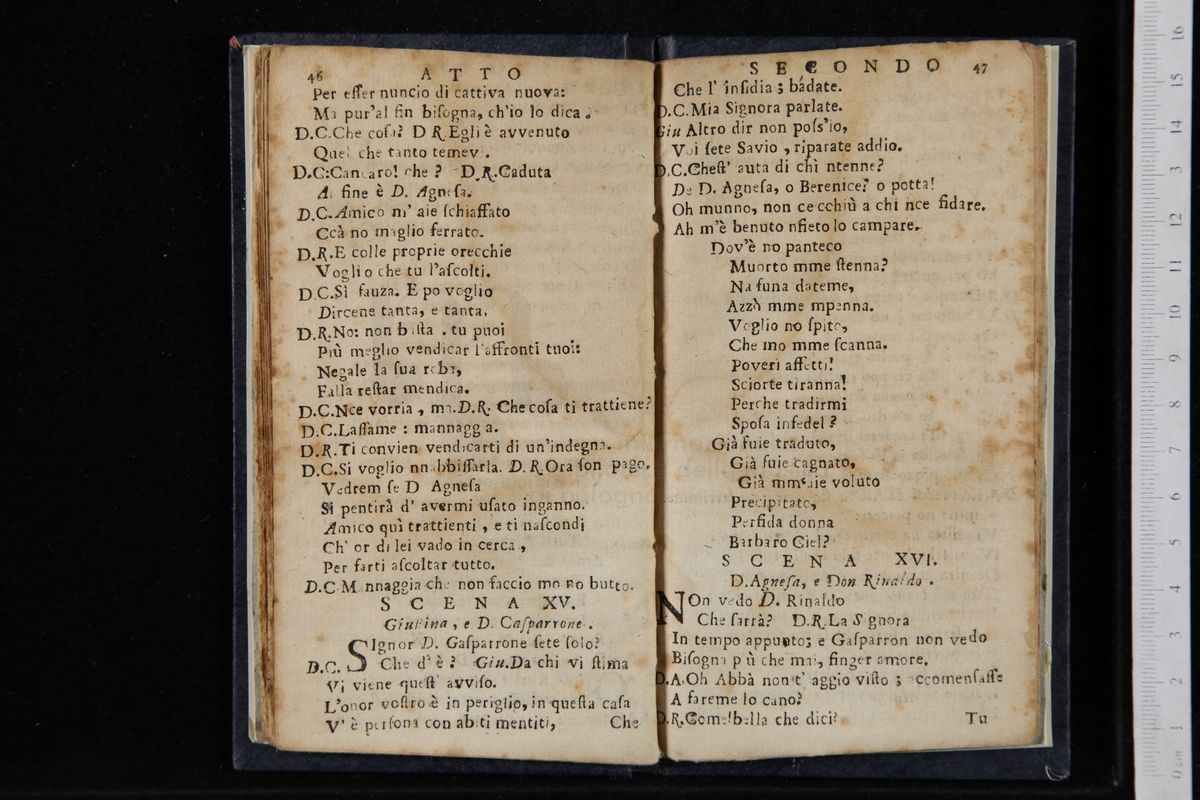 46 ATTO
Per eſſer nuncio di cattiva nuova:
Ma pur'al fin biſogna, ch'io lo dica.
D.C.Che coſa? D R.Egli è avvenuto
Quel che tanto temev .
D.C:Cancaro! che ? D.R.Caduta
Al fine è D. Agneſa.
D.C.Amico m' aie ſchiaffato
Ccà no maglio ferrato.
D.R.E colle proprie orecchie
Voglio che tu l'aſcolti.
D.C.Sì fauza. E po voglio
Dircene tanta, e tanta.
D.R.No: non baſta . tu puoi
Più meglio vendicar l'affronti tuoi:
Negale la ſua roba,
Falla reſtar mendica.
D.C.Nce vorria , ma.D.R. Che coſa ti trattiene?
D.C.Laſſame : mannagg a.
D.R.Ti convien vendicarti di un'indegna.
D.C.Sì voglio nnabbiſſarla. D.R.Ora ſon pago.
Vedrem ſe D Agneſa
Si pentirà d' avermi uſato inganno.
Amico quì trattienti , e ti naſcondi
Ch' or di lei vado in cerca ,
Per farti aſcoltar tutto.
D.C.Mannaggia che non faccio mo no butto.
SCENA XV.
Giulina , e D. Caſparrone .
SIgnor D. Gaſparrone ſete ſolo?
D.C. Che d' è ? Giu.Da chi vi ſtima
Vi viene queſt' avviſo.
L'onor voſtro è in periglio, in queſta caſa
V' è perſona con abiti mentiti, Che
SECONDO 47
Che l' inſidia ; bádate.
D.C.Mia Signora parlate.
Giu Altro dir non poſs'io,
Voi ſete Savio , riparate addio.
D.C.Cheſt' auta di chì ntenne?
De D. Agneſa, o Berenice? o potta!
Oh munno, non cecchiù a chi nce fidare.
Ah m'è benuto nfieto lo campare.
Dov'è no panteco
Muorto mme ſtenna?
Na funa dateme,
Azzò mme mpenna.
Voglio no ſpito,
Che mo mme ſcanna.
Poveri affetti!
Sciorte tiranna!
Perche tradirmi
Spoſa infedel ?
Già fuie traduto,
Già fuie cagnato,
Già mm' aie voluto
Precipitato,
Perfida donna
Barbaro Ciel?
SCENA XVI.
D.Agneſa, e Don Rinaldo .
NOn vedo D. Rinaldo
Che ſarrà? D.R.La Signora
In tempo appunto; e Gaſparron non vedo
Biſogna p ù che mai, finger amore.
D.A.Oh Abbà non t' aggio viſto ; accomenſaſſe
A fareme lo cano?
D.R.Come!bella che dici? Tu